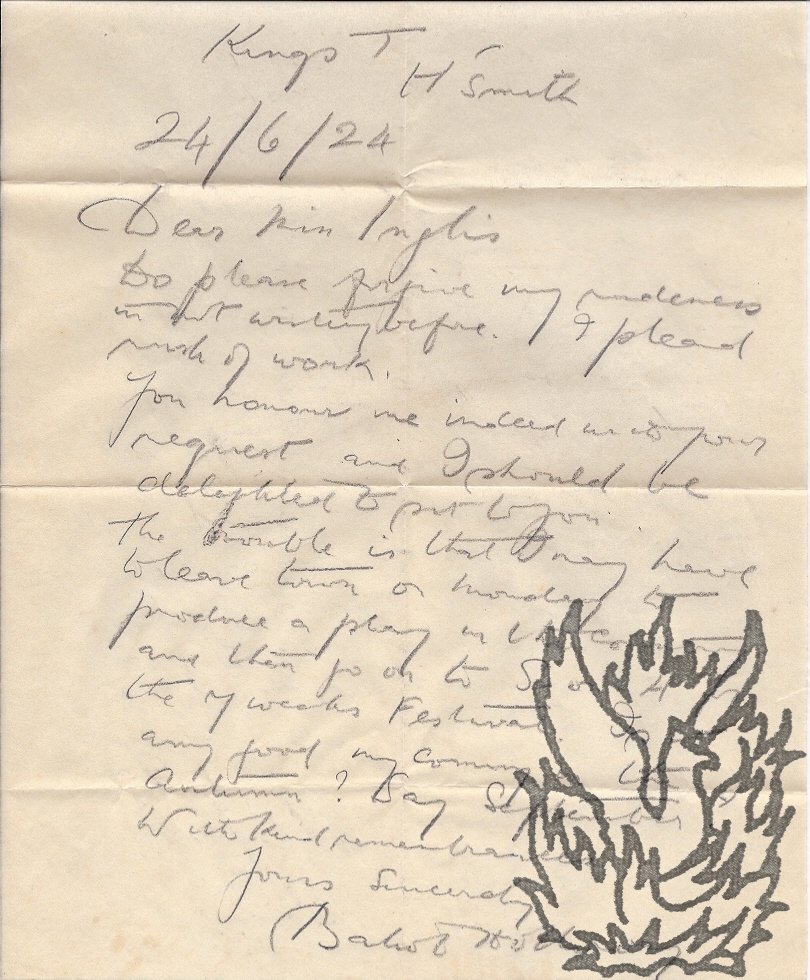 Kings T
H'Smith
24/6/24
Dear Miss Inglis
Do please forgive my rudeness
in not writing before. I plead
rush of work.
You honour me indeed with your
request and I should be
delighted to sit to you
the trouble is that I may have
to leave town on Monday to
produce a play in the
and then go on to S on 4
the 7 weeks Festival.
any good my coming
Autumn? Say September?
With kind remembrances
Yours Sincerely
Baliol Holloway